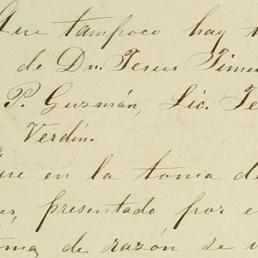 Que tampoco hay
de Dn. Jesus Jime
P. Guzmán, Lic. Te
Verdín.
Que en la toma de
presentado por e
de razón se